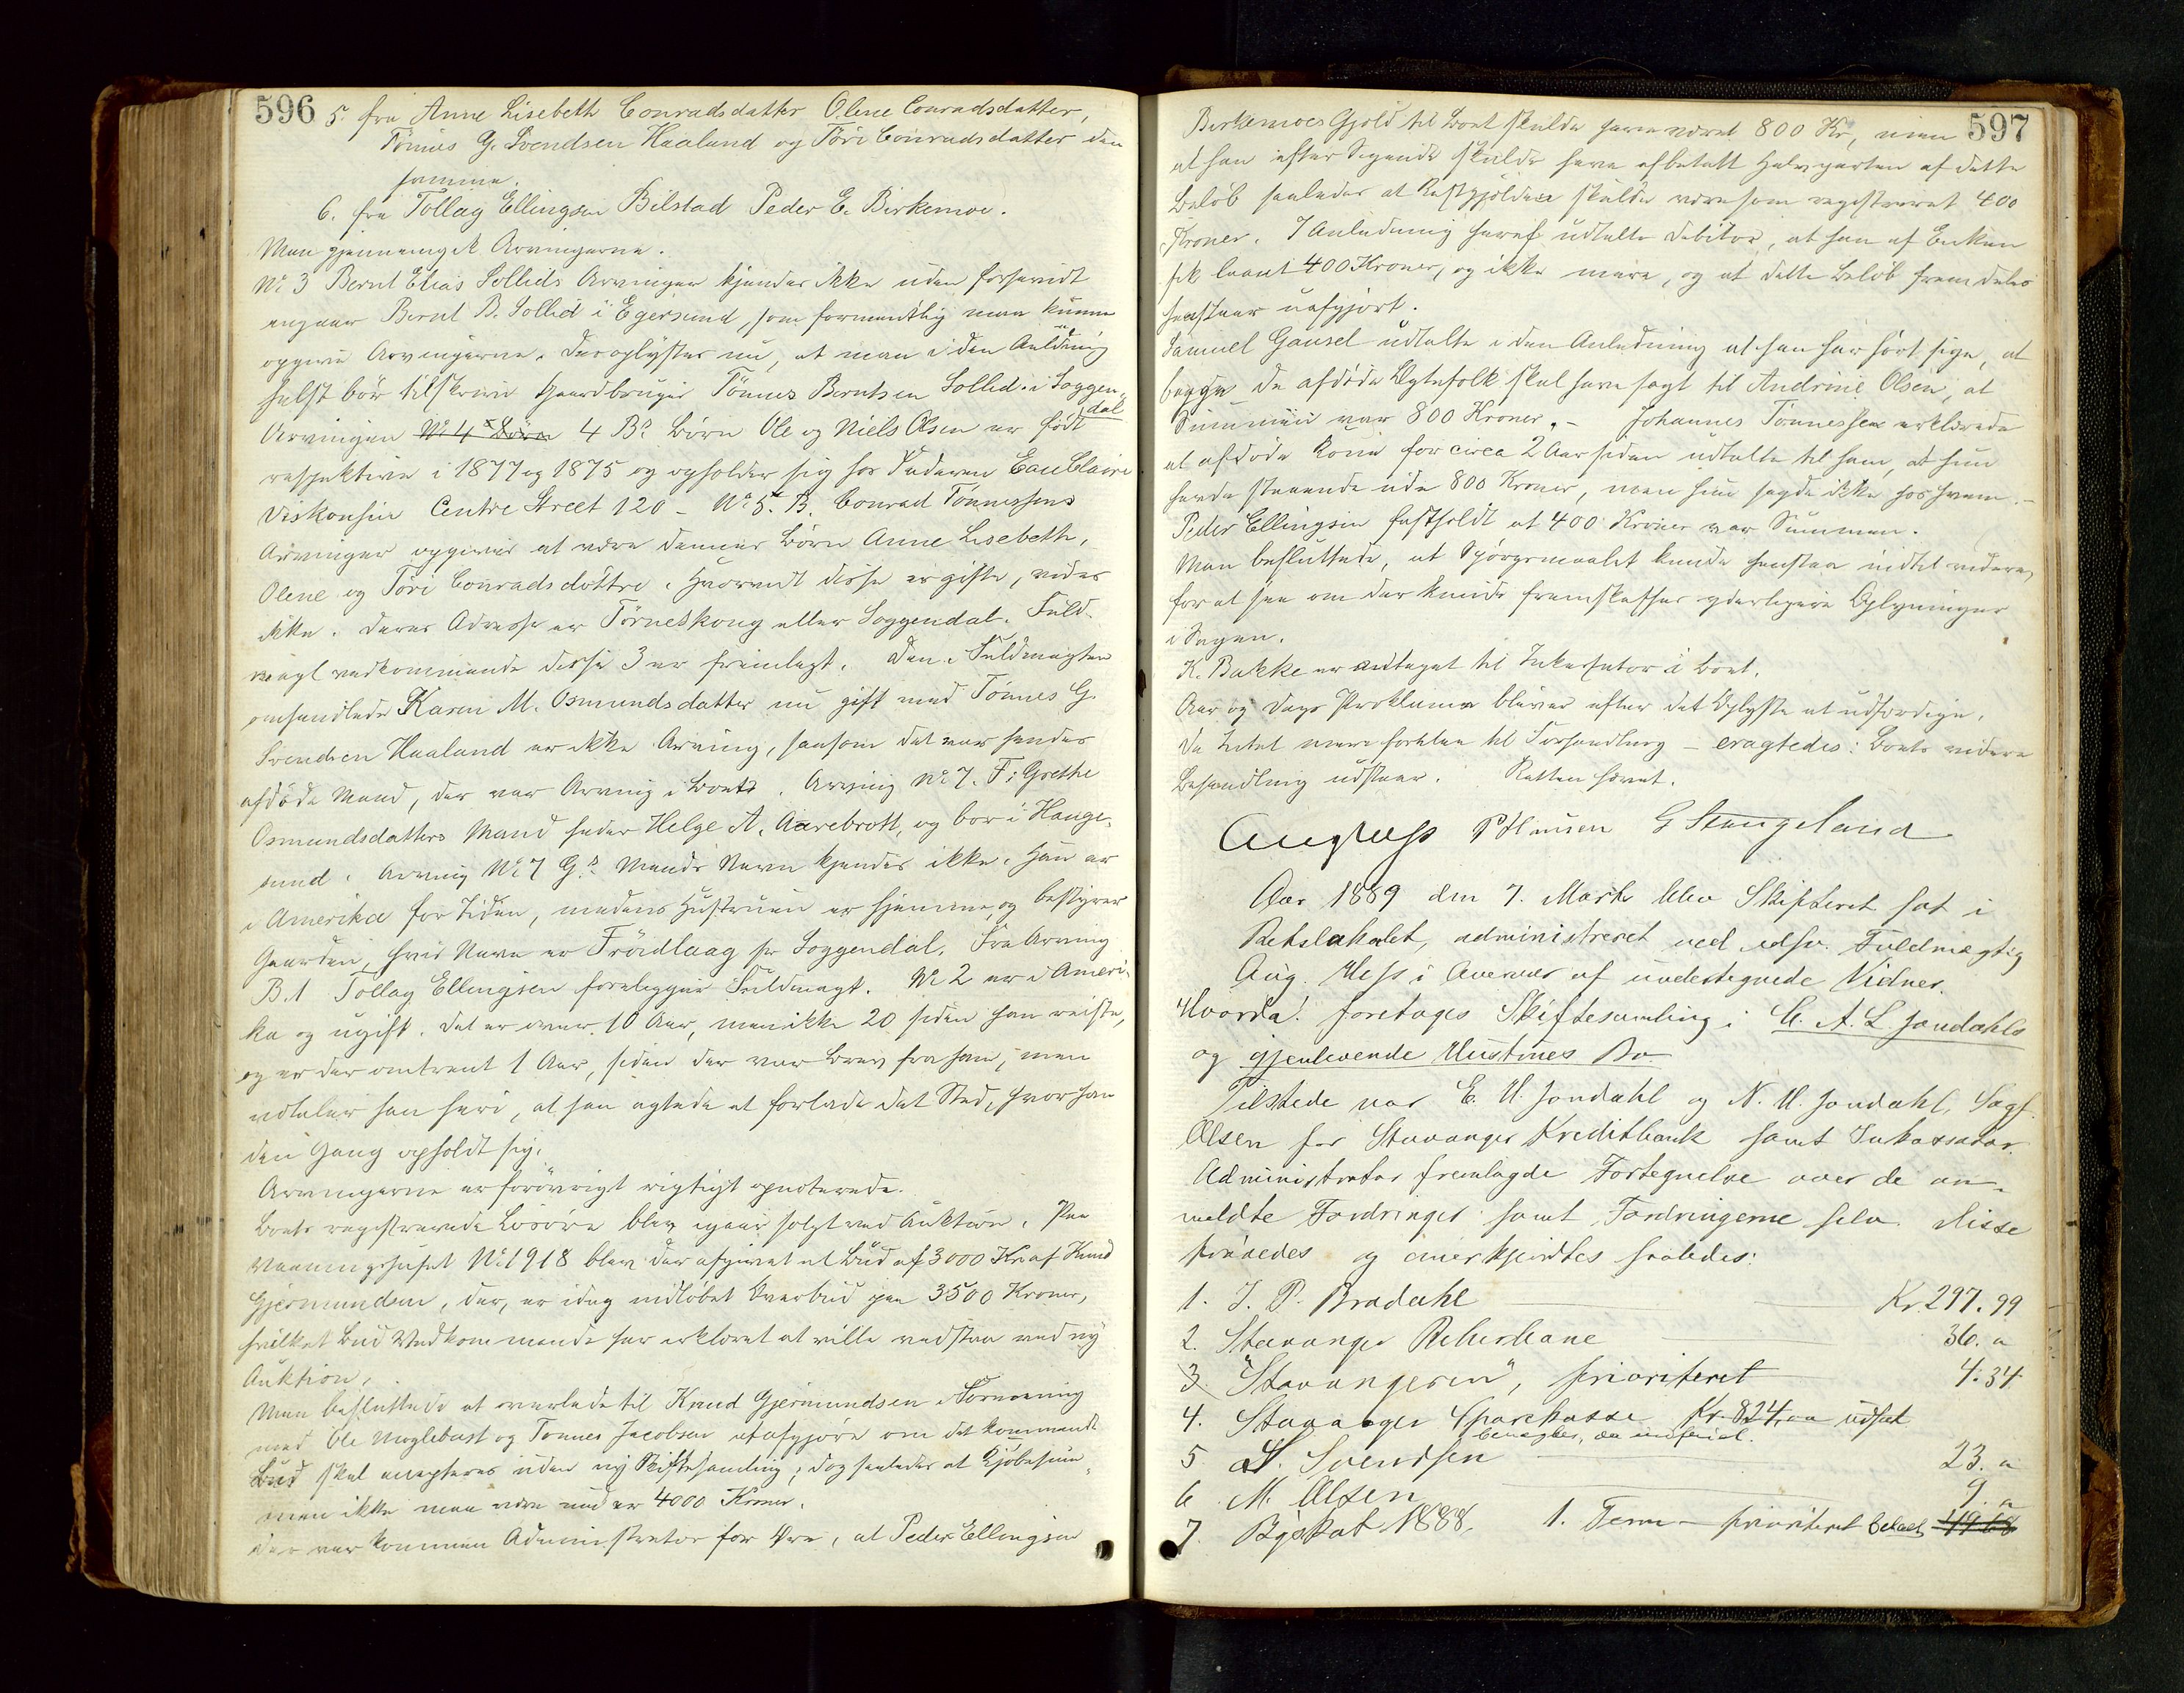 596
5. fra Anne Lisebeth Conradsdatter Olene Conradsdatter,
Tönnes G. Svendsen Haaland og Töri Conradsdatter den
samme.
6. fra Tollag Ellingsen Bilstad Peder E. Birkemoe.
Man gjennemgik Arvingerne.
No 3 Bernt Elias Sollids Arvinger kjendes ikke uden forsavidt
angaar Bernt B. Sollid i Egersund, som formentlig man kunne
opgive Arvingerne. Der oplystes nu, at man i den Anledning
helst bör tilskrive Gaardbruger Tönnes Berntsen Sollid i Soggen-
dal
Arvingen No 4 Börn 4 Bs Börn Ole og Niels Olsen er födt
respektive i 1877 og 1875 og opholder sig hos Faderen Eau Claire
Viskonsin Centre Street 120 - No 5. B. Conrad Tönnessens
Arvinger opgives at være dennes Börn Anne Lisebeth,
Olene og Töri Conradsdöttre. Hvorvidt disse er gifte, vides
ikke. Deres Adresse er Törneskoug eller Soggendal. Fuld-
magt vedkommende disse 3 er fremlagt. Den i Fuldmagten
omhandlede Karen M. Osmundsdatter nu gift med Tönnes G.
Svendsen Haaland er ikke Arving, saasom det var hendes
afdöde Mand, der var Arving i Boet. Arving No 7. F: Grethe
Osmundsdatters Mand heder Helge A. Aarebrott, og bor i Hauge-
sund. Arving No 7 G.s Mands Navn kjendes ikke. Han er
i Amerika for Tiden, medens Hustruen er hjemme, og bestyrer
Gaarden, hvis Navn er Fröidlaag pr Soggendal. Fra Arving
B.1 Tollag Ellingsen foreligger Fuldmagt. No 2 er i Ameri-
ka og ugift. Det er over 10 Aar, men ikke 20 siden han reiste,
og er der omtrent 1 Aar, siden der var Brev fra ham, men
udtaler han heri, at han agtede at forlade det Sted, hvor han
den Gang opholdt sig.
Arvingerne er forövrigt rigtigt opnoterede.
Boets registrerede Lösöre blev igaar solgt ved Auktion. Paa
Vaaningshuset No 1918 blev der afgivet et Bud af 3000 Kr af Knud
Gjermundsen, der, er idag indlöbet Overbud paa 3500 Kroner,
hvilket Bud Vedkommende har erklæret at ville vedstaa ved ny
Auktion.
Man besluttede at overlade til Knud Gjermundsen i Forening
med Ole Moglebust og Tönnes Jacobsen at afgjöre om det kommende
Bud skal accepteres uden ny Skiftesamling, dog saaledes at Kjöbesum-
men ikke maa være under 4000 Kroner.
Der var kommen Administrator for Öre, at Peder Ellingsen
597
Birkemoes Gjæld til Boet skulde have været 800 Kr, men
at han efter Sigende skulde have afbetalt Halvparten af dette
Belöb saaledes at Restgjælden skulde være som registreret 400
Kroner. I Anledning heraf udtalte Debitor, at han af Enken
fik laant 400 Kroner, og ikke mere, og at dette Belöb fremdeles
henstaar uafgjort.
Samuel Gausel udtalte i den Anledning at han har hört sige, at
begge de afdöde Ægtefolk skal have sagt til Andrine Olsen, at
Summen var 800 Kroner. - Johannes Tönnessen erklærede
at afdöde Kone for circa 2 Aar siden udtalte til ham, at hun
havde staaende ude 800 Kroner, men hun sagde ikke hos hvem. -
Peder Ellingsen fastholdt at 400 Kroner var Summen.
Man besluttede, at Spörgsmaalet kunde henstaa indtil videre,
for at see om der kunde fremskaffes yderligere Oplysninger
i Sagen.
K. Bakke er antaget til Inkassator i Boet.
Aar og Dags Proklama bliver efter det Oplyste at udfærdige.
Da Intet mere forelaa til Forhandling - eragtedes: Boets videre
Behandling udstaar. Retten hævet.
Aug Hess P Hansen G Stangeland
Aar 1889 den 7. Marts blev Skifteret sat i
Retslokalet, administreret ved edsv. Fuldmægtig
Aug. Hess i Overvær af undertegnede Vidner.
Hvorda! foretoges Skiftesamling i C. A. L. Jondahls
og gjenlevende Hustrues Bo
Tilstede var E. H. Jondahl og N. H. Jondahl, Sagf.
Olsen for Stavanger Kreditbank samt Inkassator.
Administrator fremlagde Fortegnelse over de an-
meldte Fordringer samt Fordringerne selv. Disse
prövedes og anerkjendtes saaledes:
1. J. P. Bradahl Kr 297.99
2. Stavanger Reberbane 36. "
3. "Stavangeren", prioriteret 4.34
4. Stavanger Sparekasse Kr. 824, " udsat
5 S. Svendsen 23. "
6. M. Olsen 9. "
7. Byskat 1888. 1. Term - prioriteret betalt 49.68